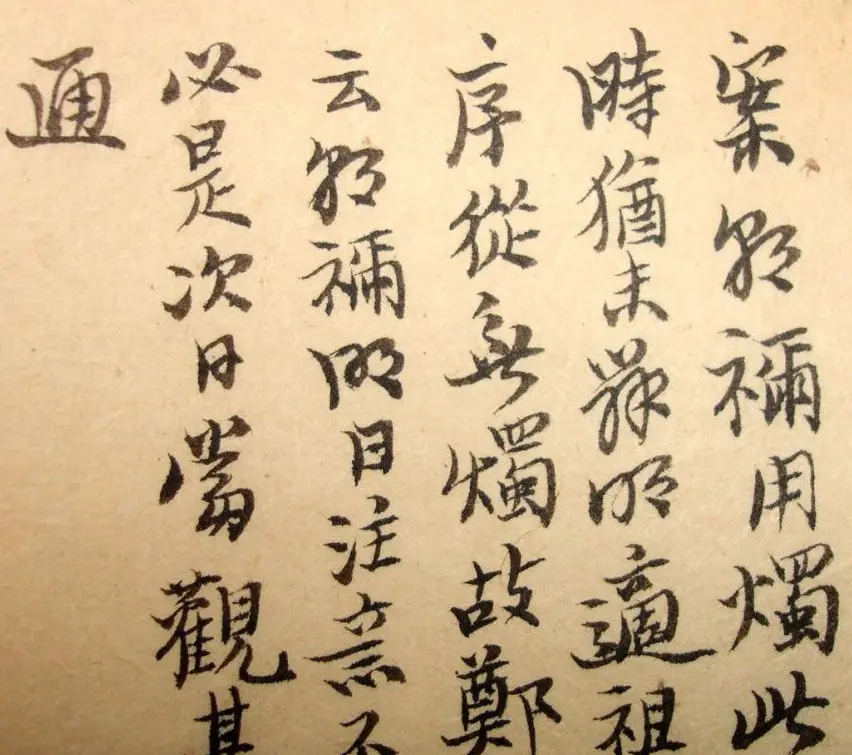 案朝禰用燭此
時猶未明適祖
序從無燭故鄭
云朝禰明日注意不
必是次日當觀其
通